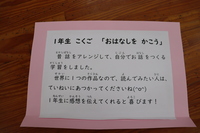 1年生 こくご 「おはなしを かこう」
昔話をアレンジして、自分でお話をつくる
学習をしました。
世界に1つの作品なので、読んでみたい人は、
ていねいにあつかってくださいね(^o^)
1年生に感想を伝えてくれると喜びます！